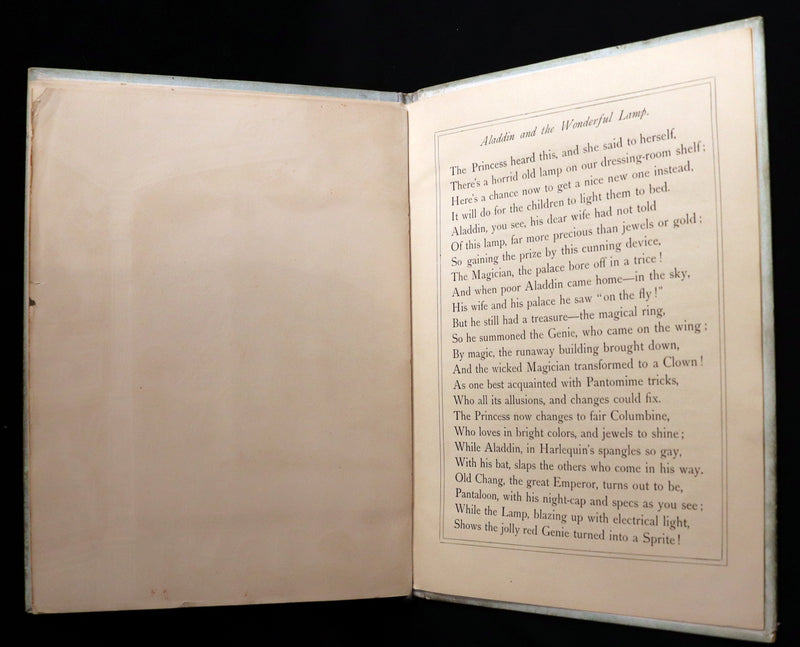 Aladdin and the Wonderful Lamp.
The Princess heard this, and she said to herself,
There's a horrid old lamp on our dressing-room shelf;
Here's a chance now to get a nice new one instead,
It will do for the children to light them to bed.
Aladdin, you see, his dear wife had not told
Of this lamp, far more precious than jewels or gold;
So gaining the prize by this cunning device,
The Magician, the palace bore off in a trice!
And when poor Aladdin came home—in the sky,
His wife and his palace he saw "on the fly!"
But he still had a treasure—the magical ring,
So he summoned the Genie, who came on the wing;
By magic, the runaway building brought down,
And the wicked Magician transformed to a Clown!
As one best acquainted with Pantomime tricks,
Who all its allusions, and changes could fix.
The Princess now changes to fair Columbine,
Who loves in bright colors, and jewels to shine;
While Aladdin, in Harlequin's spangles so gay,
With his bat, slaps the others who come in his way.
Old Chang, the great Emperor, turns out to be,
Pantaloon, with his night-cap and specs as you see;
While the Lamp, blazing up with electrical light,
Shows the jolly red Genie turned into a Sprite!